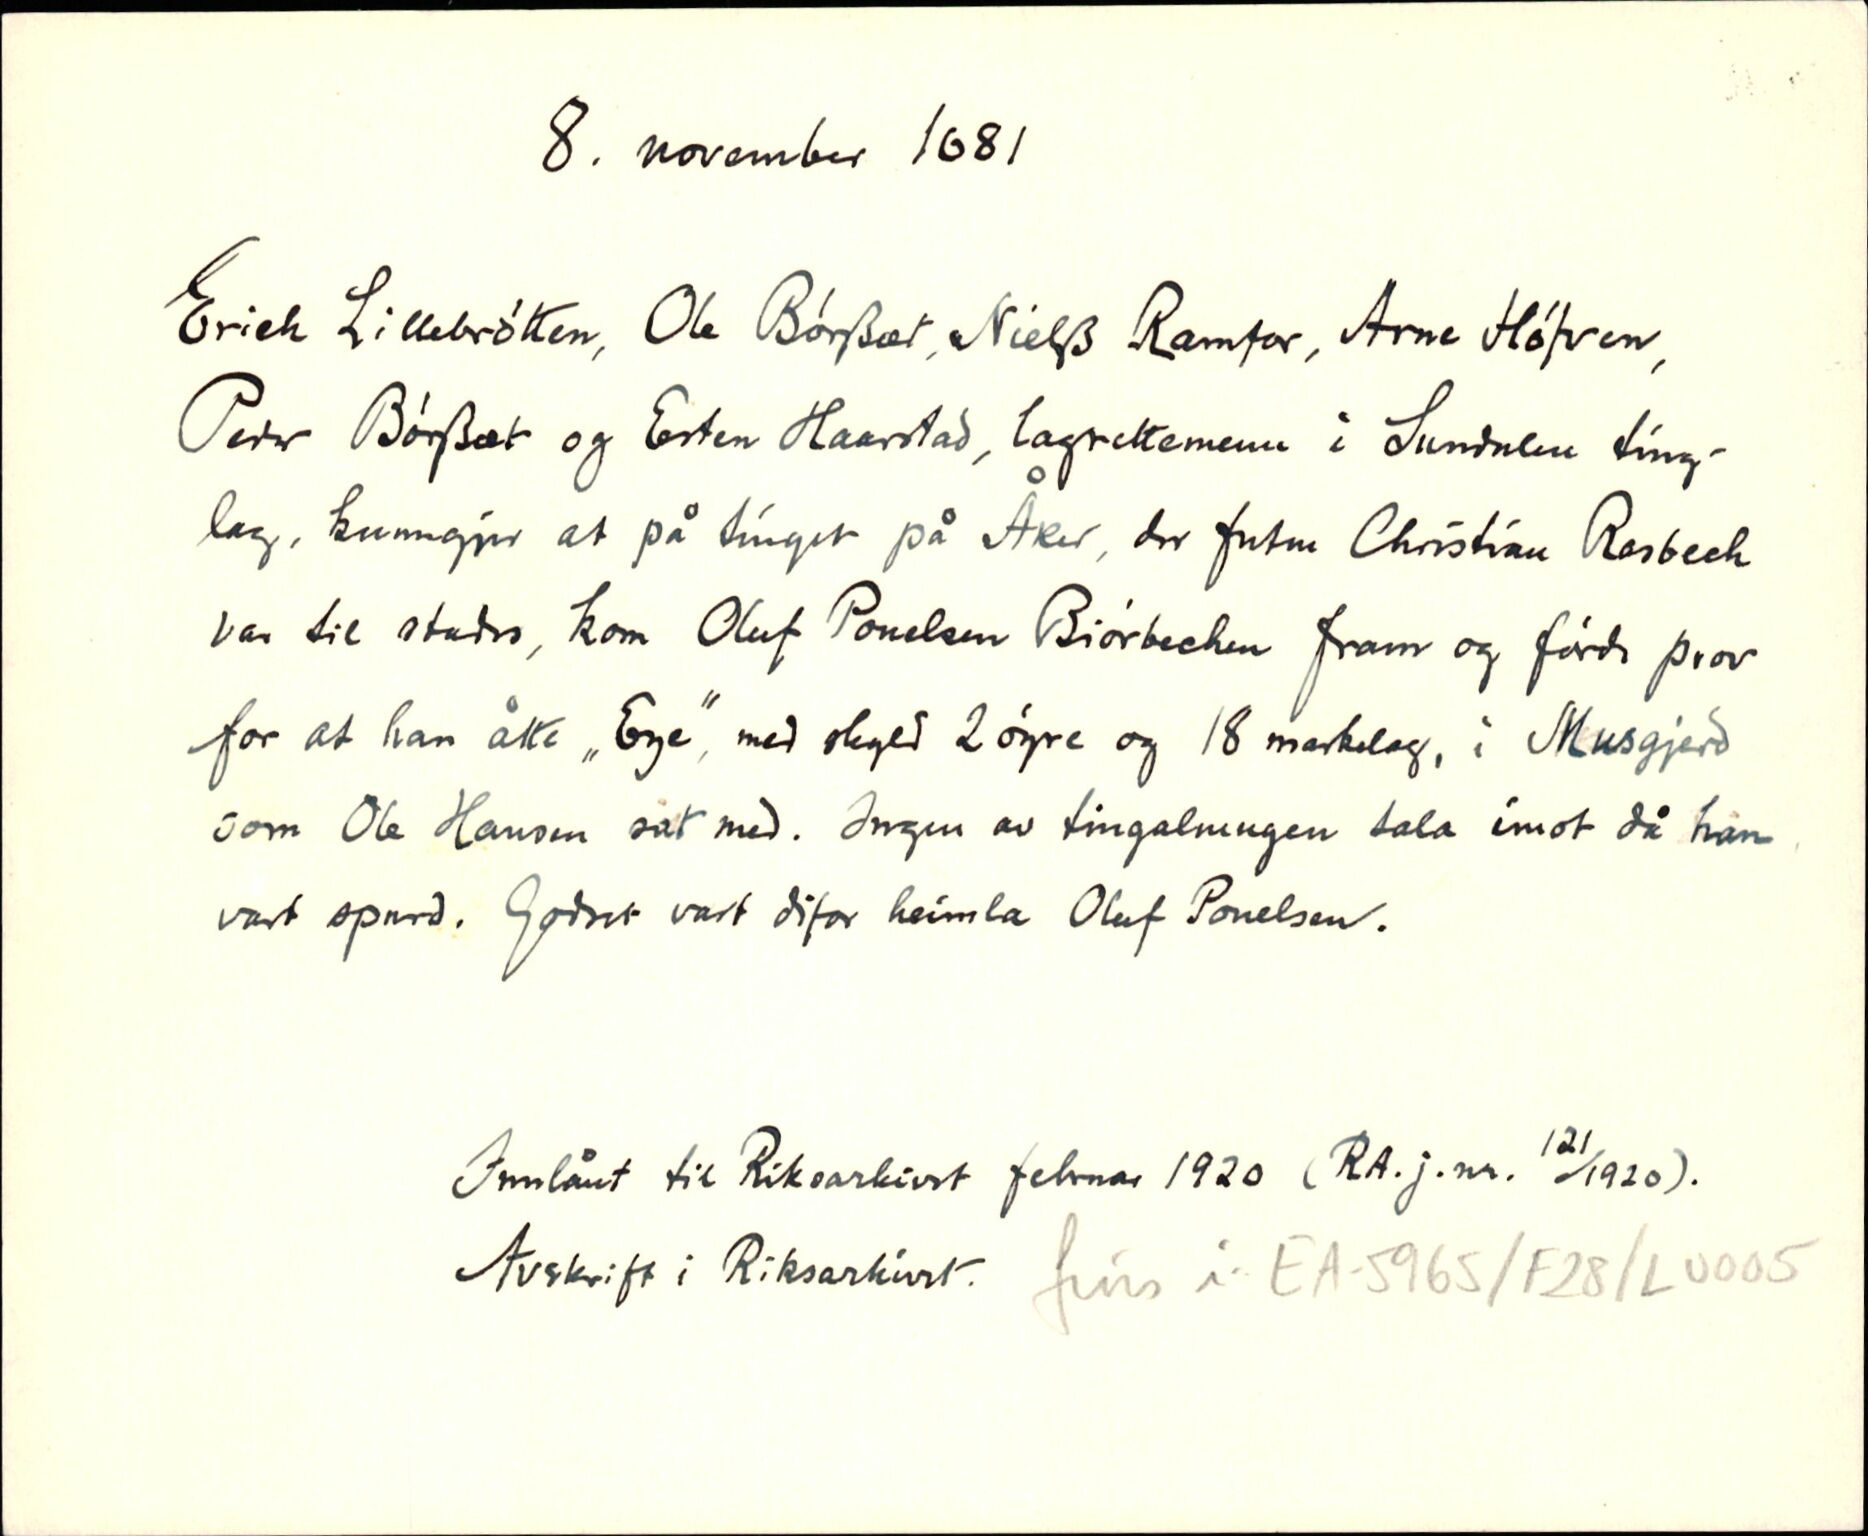 8. november 1681
Erich Lillebrötten, Ole Börßæt, Nielß Ramfor, Arne Höfven,
Peder Börßæt og Esten Haarstad, lagrettemenn i Sundalen ting-
lag, kunngjer at på tinget på Åker, der futen Christian Rasbech
var til stades, kom Oluf Pouelsen Biörbechen fram og förde prov
for at han åtte „Eye”, med skyld 2 öyre og 18 markelag, i Musgjerd
som Ole Hansen sat med. Ingen av tingalmugen tala imot då han
vart spurd. Godset vart difor heimla Oluf Pouelsen.
Innlånt til Riksarkivet februar 1920 (RA. j. nr. 121/1920).
Avskrift i Riksarkivet. fins i EA-5965/F28/L0005